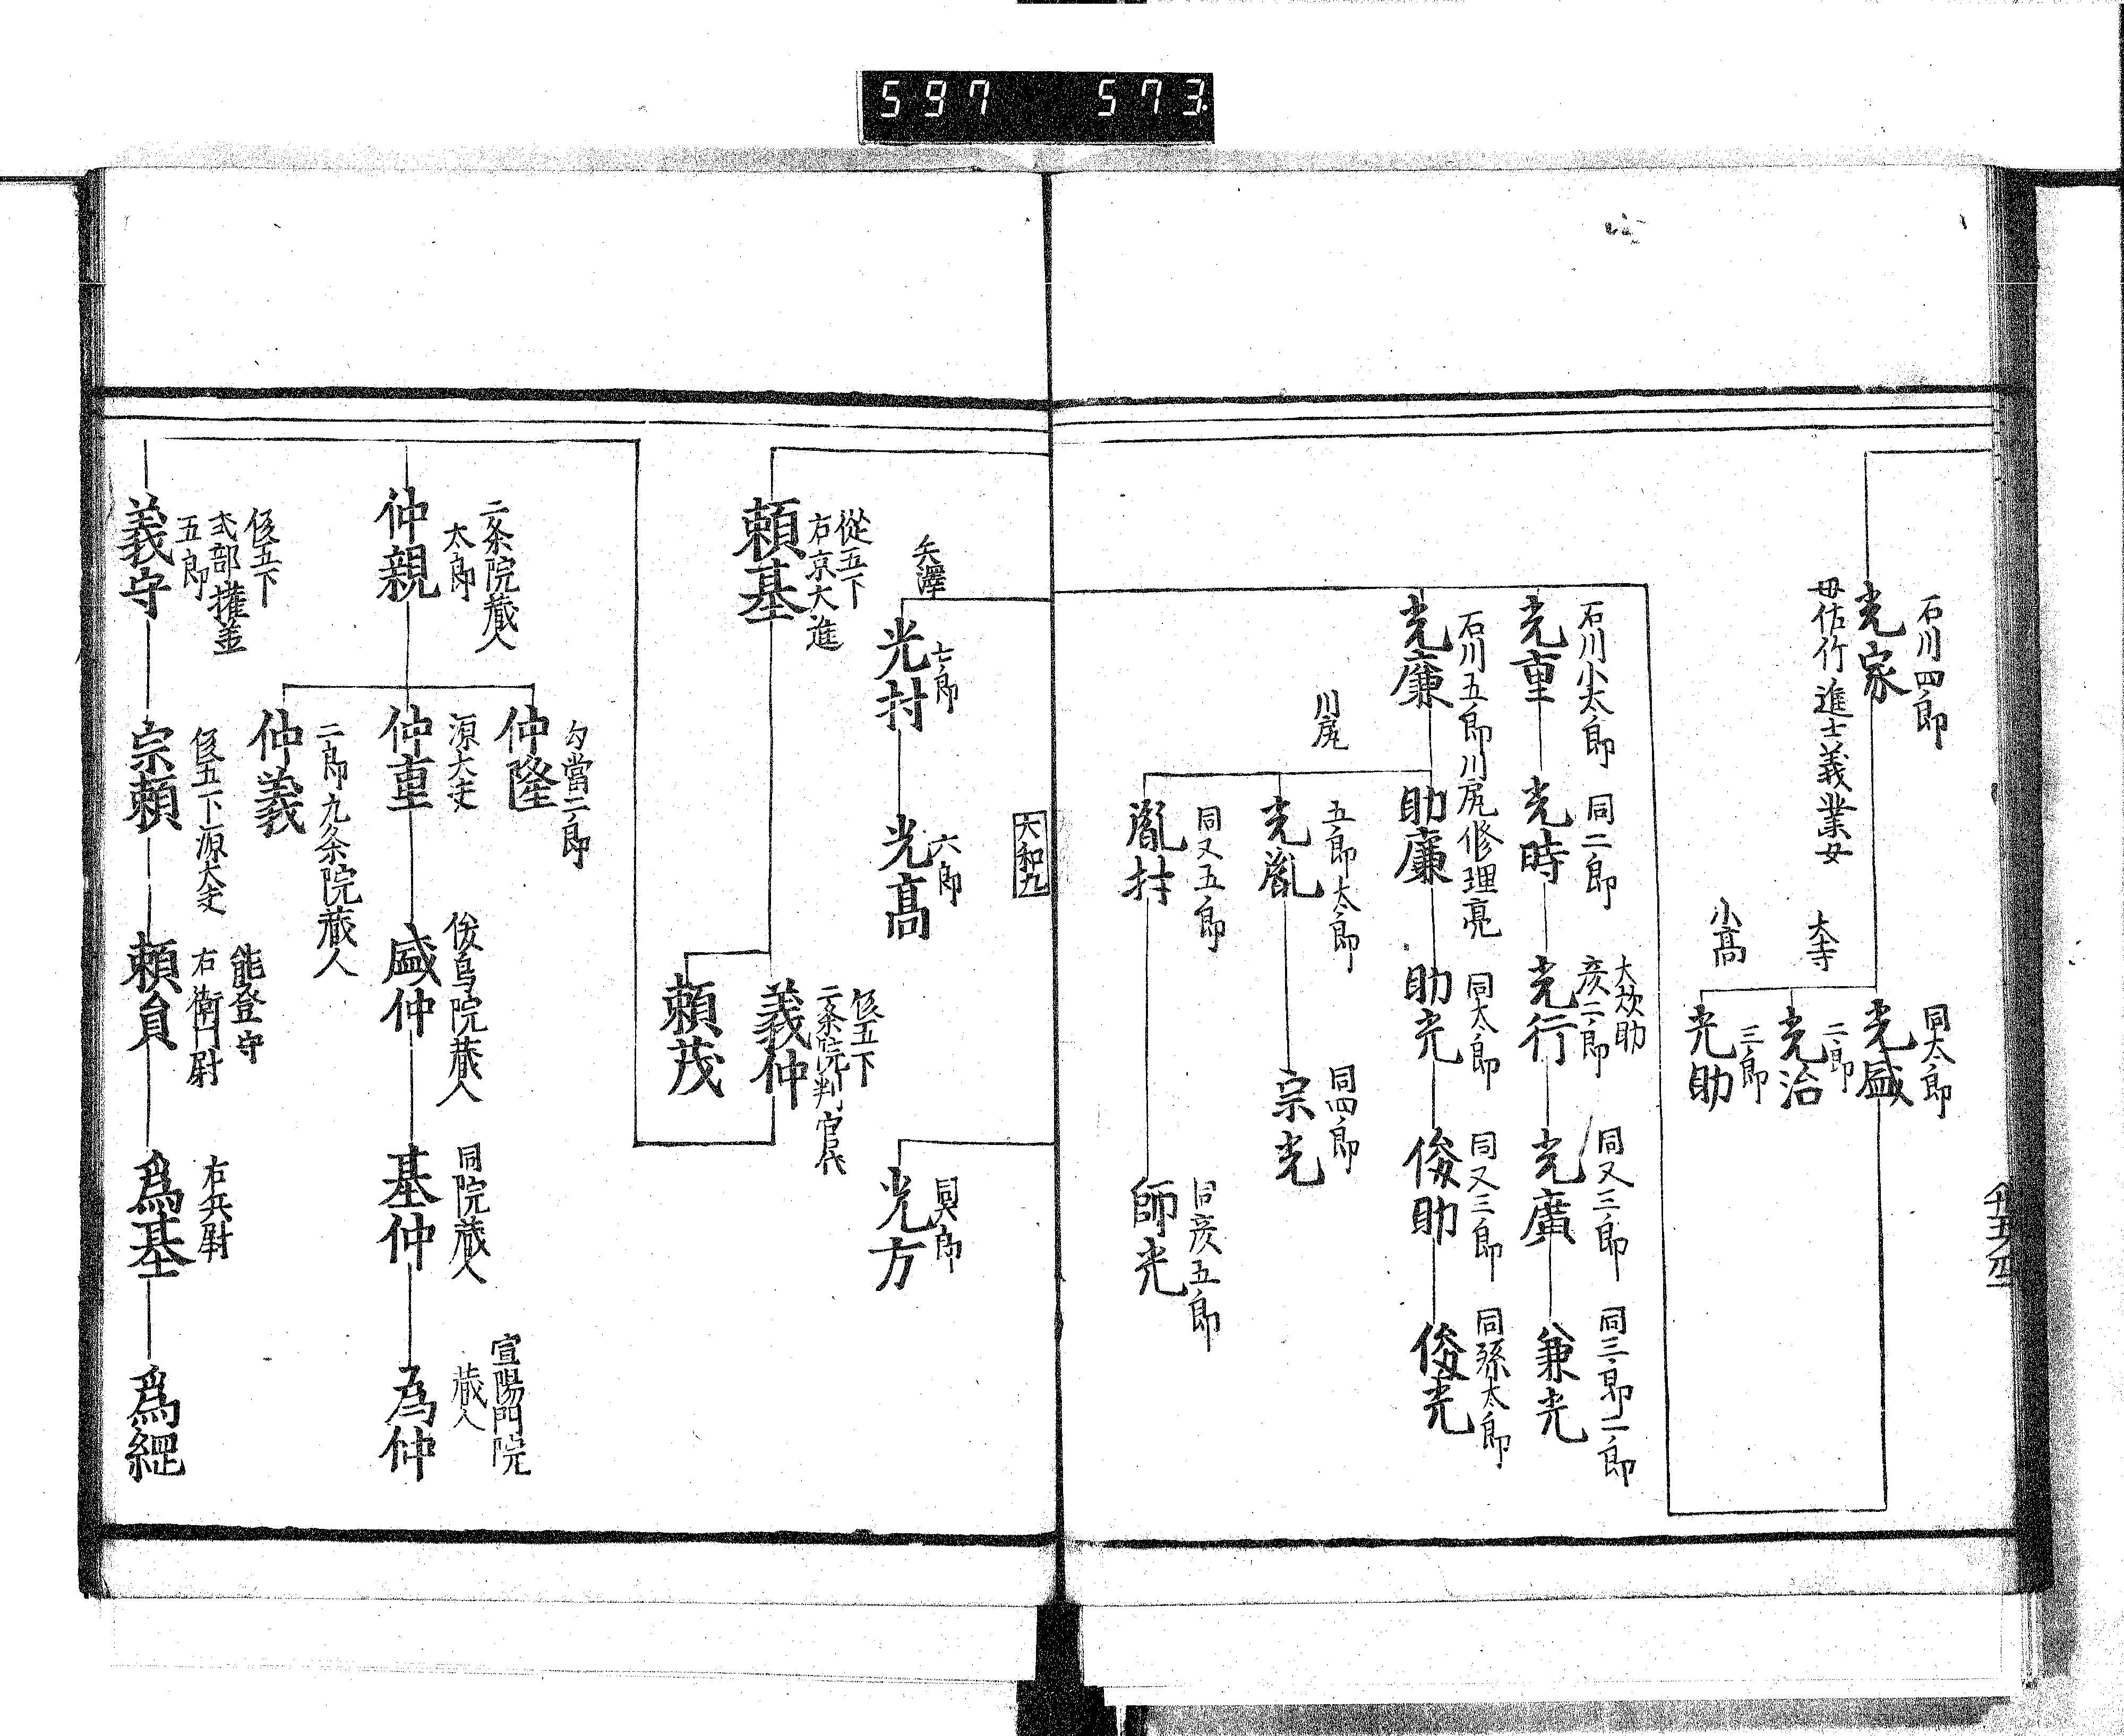 597 573
石川四郎
光家
母佐竹進士義業女
同太郎
光盛
大寺
二郎
光治
小高
三郎
光助
石川小太郎
光重
同二郎
光時
大炊助
彦二郎
光行
同又三郎
光廣
同三郎二郎
兼光
石川五郎川尻修理亮
光廉
助廉
同太郎
助光
同又三郎
俊助
同孫太郎
俊光
川尻
五郎太郎
光胤
同四郎
宗光
同又五郎
胤村
同彦五郎
師光
大和九
矢澤
七郎
光村
六郎
光高
光方
從五下
右京大進
頼基
従五下
二条院判官代
義仲
頼茂
二条院蔵人
太郎
仲親
勾當二郎
仲隆
源大夫
仲重
後鳥院蔵人
盛仲
同院蔵人
基仲
宣陽門院
蔵人
為仲
二郎九条院蔵人
仲義
従五下
式部權並
五郎
義守
従五下源大夫
宗頼
能登守
右衛門尉
頼貟
右兵尉
爲基
爲經